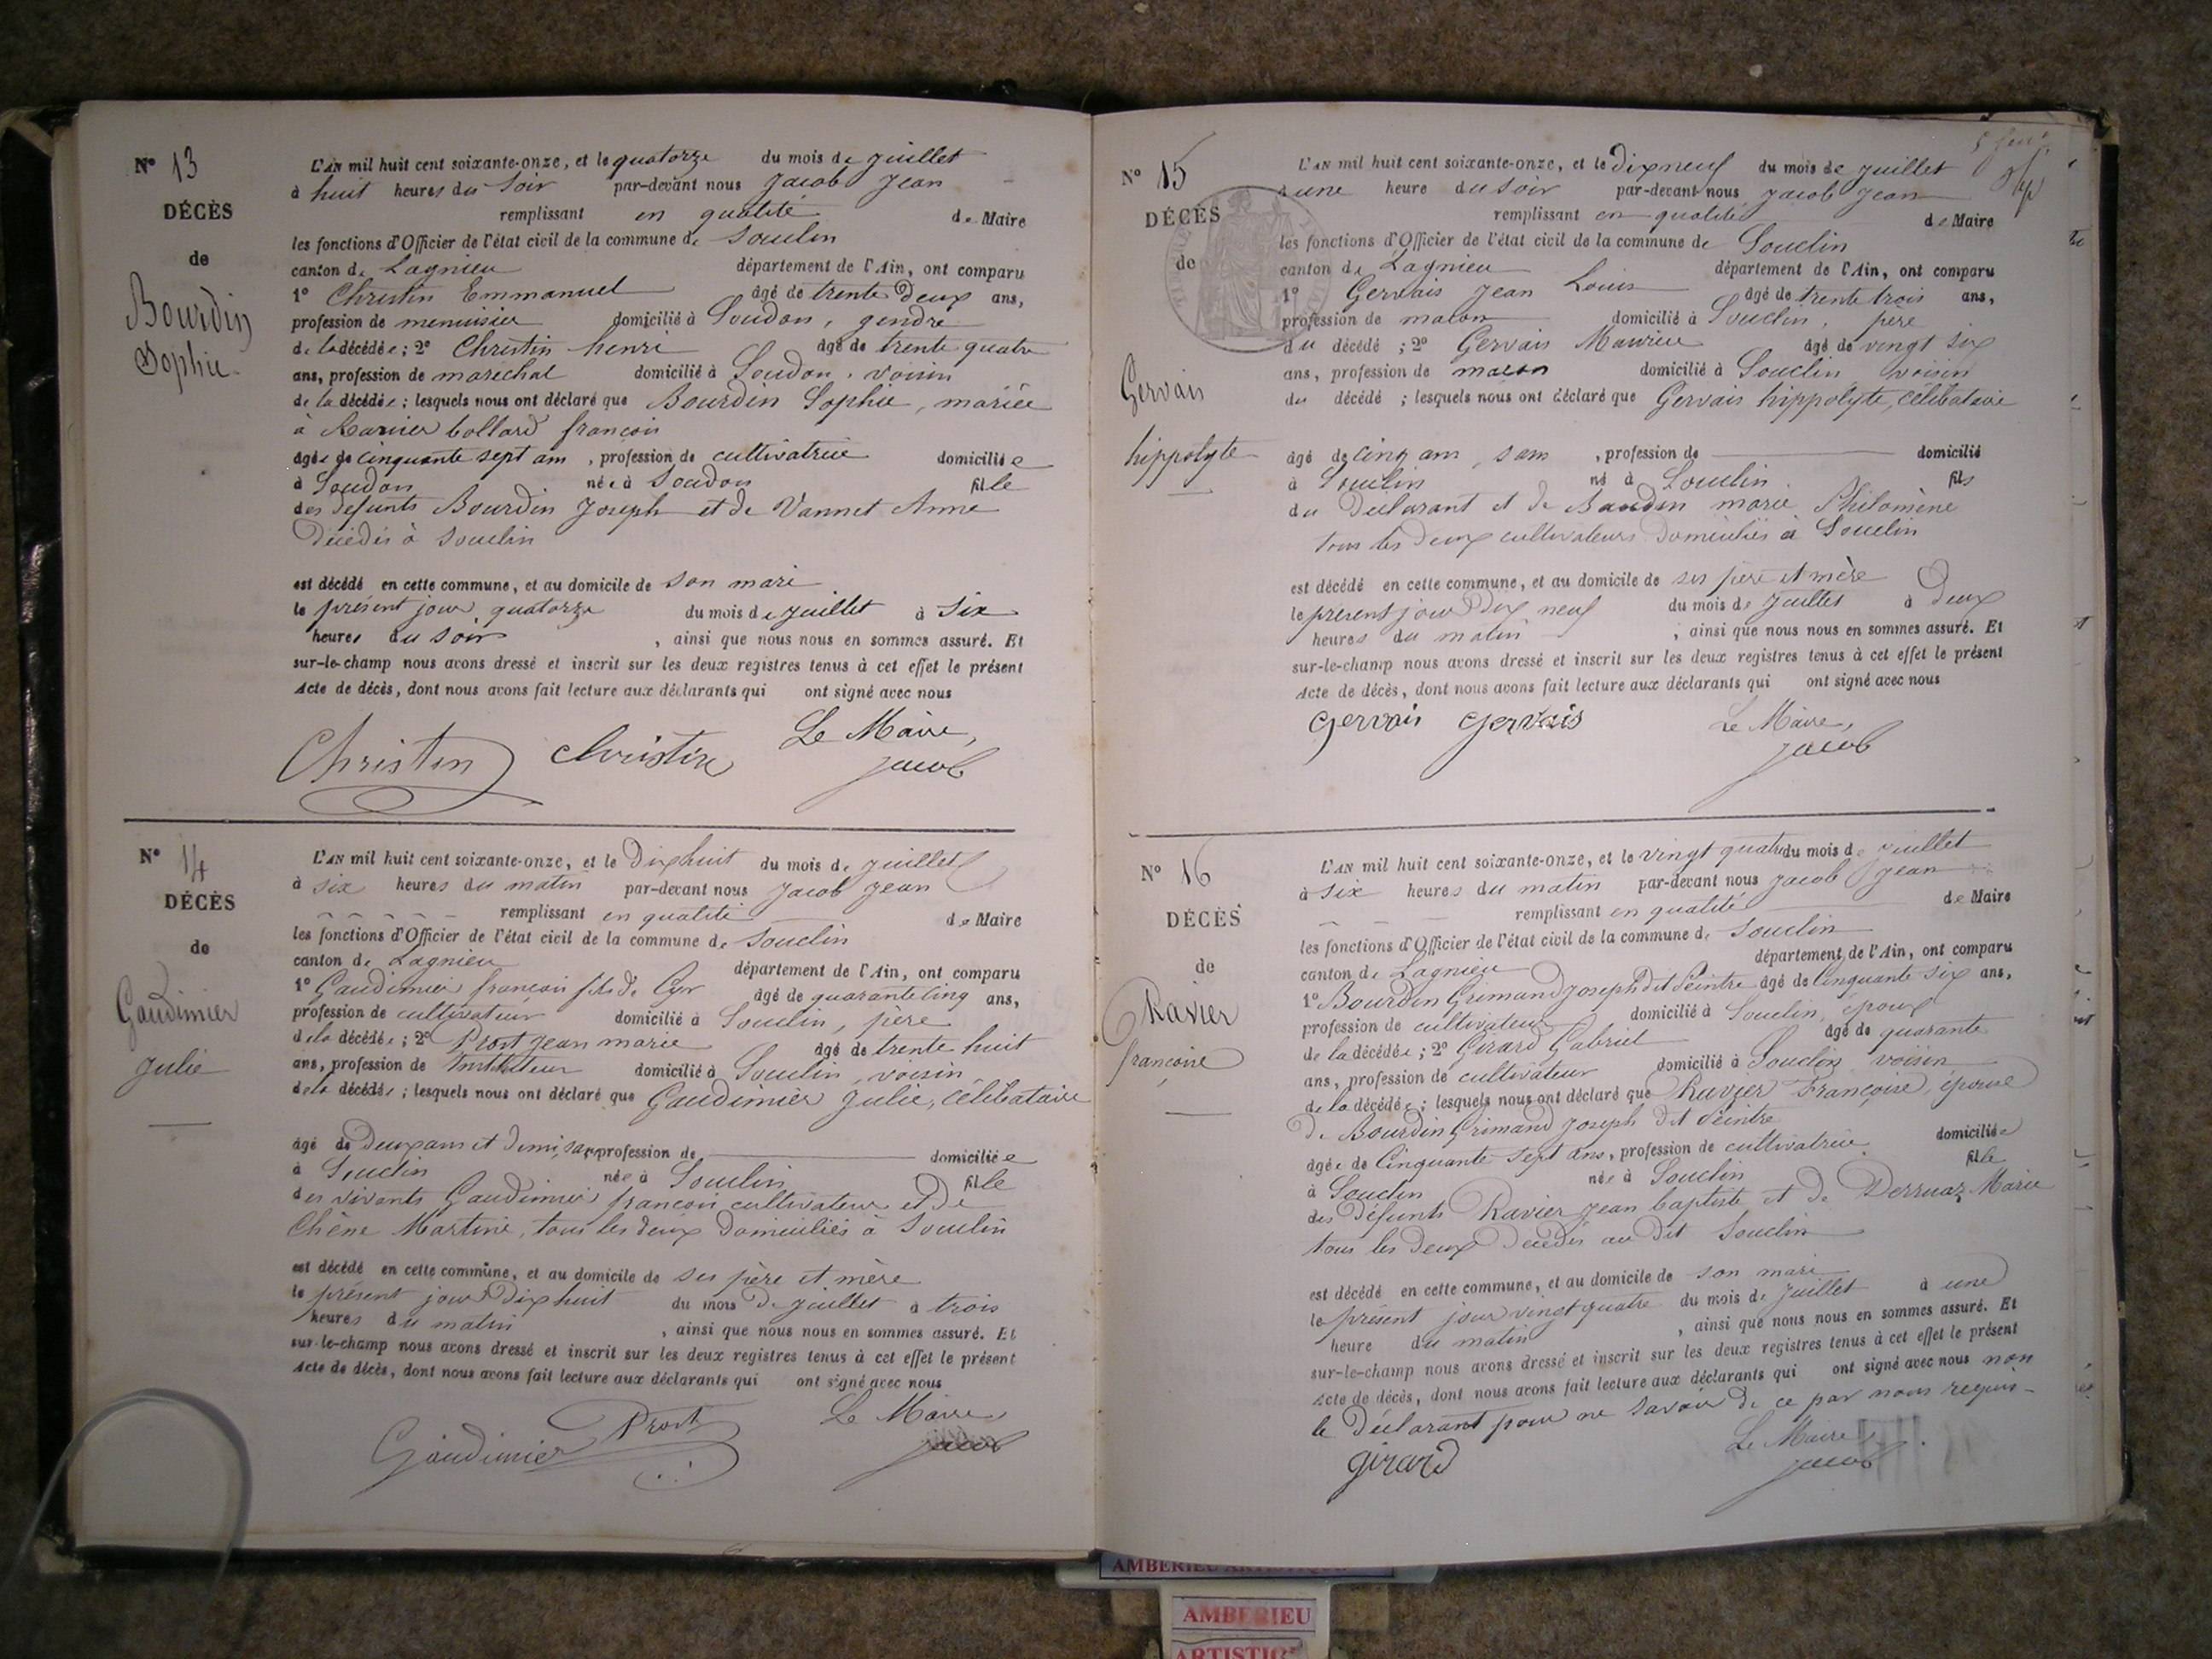 N° 13
DÉCÈS
de
Bourdin
Sophie
L'AN mil huit cent soixante-onze, et le quatorze du mois de juillet
à huit heures du soir par-devant nous Jacob Jean
remplissant en qualité de Maire
les fonctions d'Officier de l'état civil de la commune de Souclin
canton de Lagnieu département de l'Ain, ont comparu
1° Christin Emmanuel âgé de trente deux ans,
profession de menuisier domicilié à Soudon, gendre
de la décédée ; 2° Christin henri âgé de trente quatre
ans, profession de marechal domicilié à Soudon, voisin
de la décédée ; lesquels nous ont déclaré que Bourdin Sophie, mariée
à bollard françois
âgée de cinquante sept ans, profession de cultivatrice domiciliée
à Soudon née à Soudon fille
des défunts Bourdin Joseph et de Vannet Anne
décédés à Souclin
est décédé en cette commune, et au domicile de son mari
le présent jour quatorze du mois de juillet à six
heures du soir, ainsi que nous nous en sommes assuré. Et
sur-le-champ nous avons dressé et inscrit sur les deux registres tenus à cet effet le présent
Acte de décès, dont nous avons fait lecture aux déclarants qui ont signé avec nous
Le Maire,
Christin Christin Jacob
N° 14
DÉCÈS
de
Gaudimier
Julie
L'AN mil huit cent soixante-onze, et le Dix huit du mois de juillet
à six heures du matin par-devant nous Jacob Jean
remplissant en qualité de Maire
les fonctions d'Officier de l'état civil de la commune de Souclin
canton de Lagnieu département de l'Ain, ont comparu
1° Gaudimier françois fils de Cyr âgé de quarante cinq ans,
profession de cultivateur domicilié à Souclin, père
de la décédée ; 2° Prost Jean marie âgé de trente huit
ans, profession de Instituteur domicilié à Souclin, voisin
de la décédée ; lesquels nous ont déclaré que Gaudimier Julie, célibataire
âgé de Deux ans et demi, san profession de domiciliée
à Souclin née à Souclin fille
des vivants Gaudimier françois cultivateur et de
Chêne Martine, tous les deux domiciliés à Souclin
est décédé en cette commune, et au domicile de ses père et mère
le présent jour Dix huit du mois de juillet à trois
heures du matin, ainsi que nous nous en sommes assuré. Et
sur-le-champ nous avons dressé et inscrit sur les deux registres tenus à cet effet le présent
Acte de décès, dont nous avons fait lecture aux déclarants qui ont signé avec nous
Le Maire
Gaudimier Prost Jacob
N° 15
DÉCÈS
de
Gervais
hippolyte
L'AN mil huit cent soixante-onze, et le Dix neuf du mois de juillet
à une heure du soir par-devant nous Jacob Jean
remplissant en qualité de Maire
les fonctions d'Officier de l'état civil de la commune de Souclin
canton de Lagnieu département de l'Ain, ont comparu
1° Gervais Jean Louis âgé de trente trois ans,
profession de maçon domicilié à Souclin, père
du décédé ; 2° Gervais Maurice âgé de vingt six
ans, profession de maçon domicilié à Souclin voisin
du décédé ; lesquels nous ont déclaré que Gervais hippolyte, célibataire
âgé de cinq ans, sans, profession de domicilié
à Souclin né à Souclin fils
du Déclarant et de marie Philomène
tous les deux cultivateurs domiciliés à Souclin
est décédé en cette commune, et au domicile de ses père et mère
le present jour Dix neuf du mois de juillet à Deux
heures du matin, ainsi que nous nous en sommes assuré. Et
sur-le-champ nous avons dressé et inscrit sur les deux registres tenus à cet effet le présent
Acte de décès, dont nous avons fait lecture aux déclarants qui ont signé avec nous
Gervais Gervais Le Maire,
Jacob
N° 16
DÉCÈS
de
Ravier
françoise
L'AN mil huit cent soixante-onze, et le vingt quatre du mois de juillet
à six heures du matin par-devant nous Jacob Jean
remplissant en qualité de Maire
les fonctions d'Officier de l'état civil de la commune de Souclin
canton de Lagnieu département de l'Ain, ont comparu
1° Bourdin Grimand Joseph dit Peintre âgé de Cinquante six ans,
profession de cultivateur domicilié à Souclin, époux
de la décédée ; 2° Girard Gabriel âgé de quarante
ans, profession de cultivateur domicilié à Souclin voisin
de la décédée ; lesquels nous ont déclaré que Ravier Françoise, épouse
de Bourdin Grimand Joseph dit Peintre
âgée de Cinquante sept ans, profession de cultivatrice domiciliée
à Souclin née à Souclin fille
des défunts Ravier Jean baptiste et de Derruaz Marie
tous les deux décédés au dit Souclin
est décédé en cette commune, et au domicile de son mari
le présent jour vingt quatre du mois de juillet à une
heure du matin, ainsi que nous nous en sommes assuré. Et
sur-le-champ nous avons dressé et inscrit sur les deux registres tenus à cet effet le présent
Acte de décès, dont nous avons fait lecture aux déclarants qui ont signé avec nous non
le Déclarant pour ne savoir de ce par nous requis
Le Maire
Girard Jacob
AMBERIEU ARTISTIQUE
AMBERIEU